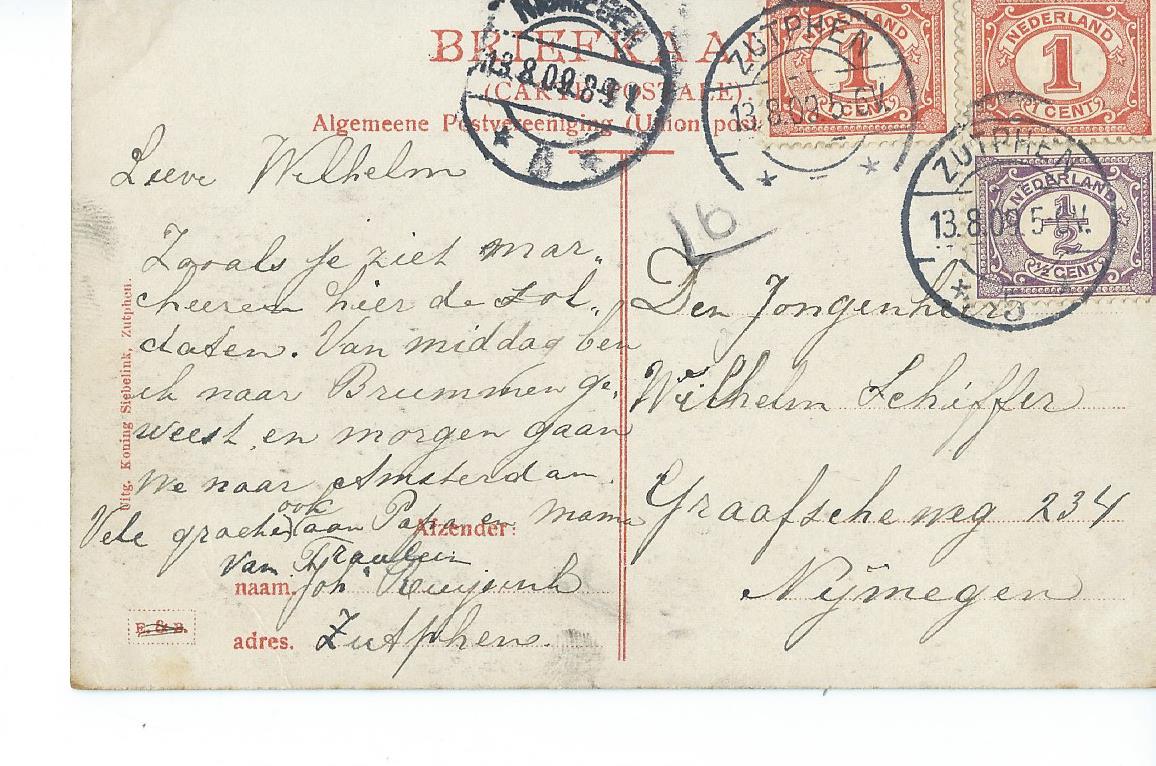 BRIEFKAART
(CARTE POSTALE).
Algemeene Postvereeniging (Union post
NIJMEGEN
13.8.09.8-9 V.
ZUTPHEN
13.8.09 5-6 N.
NEDERLAND
1
CENT
NEDERLAND
1
CENT
ZUTPHEN
13.8.09 5-6 N.
NEDERLAND
1/2
1/2 CENT
16
Lieve Wilhelm
Zooals je ziet mar„
cheeren hier de sol„
daten. Van middag ben
ik naar Brummen ge„
weest, en morgen gaan
we naar Amsterdam.
Vele groeten ook aan Papa en Mama
Afzender:
van Fraulein
naam. Joh
adres. Zutphen.
Uitg. Koning Siebelink, Zutphen.
E. & B.
Den Jongenheer
Wilhelm Schiffer
Graafscheweg 234
Nijmegen